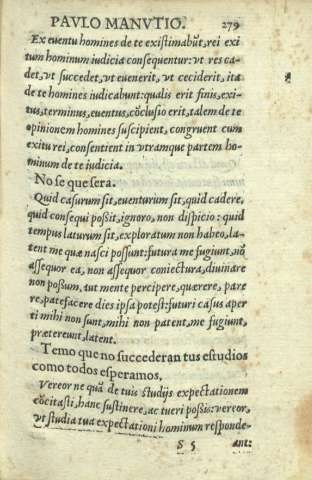 PAVLO MANVTIO. 279
Ex euentu homines de te existimabũt, rei exi
tum hominum iudicia consequentur: vt res ca-
det, vt succedet, vt euenerit, vt ceciderit, ita
de te homines iudicabunt: qualis erit finis, exi-
tus, terminus, euentus, cõclusio erit, talem de te
opinionem homines suscipient, congruent cum
exitu rei, consentient in vtramque partem ho-
minum de te iudicia.
No se que sera.
Quid casurum sit, euenturum sit, quid cadere,
quid consequi possit, ignoro, non dispicio: quid
tempus laturum sit, exploratum non habeo, la-
tent me quæ nasci possunt: futura me fugiunt, nõ
assequor ea, non assequor coniectura, diuinare
non possum, aut mente percipere, quærere, pare
re, patefacere dies ipsa potest: futuri casus aper
ti mihi non sunt, mihi non patent, me fugiunt,
prætereunt, latent.
Temo que no succederan tus estudios
como todos esperamos.
Vereor ne quã de tuis studijs expectationem
cõcitasti, hanc sustinere, ac tueri possis: vereor,
vt studia tua expectationi hominum responde-
S 5 ant: